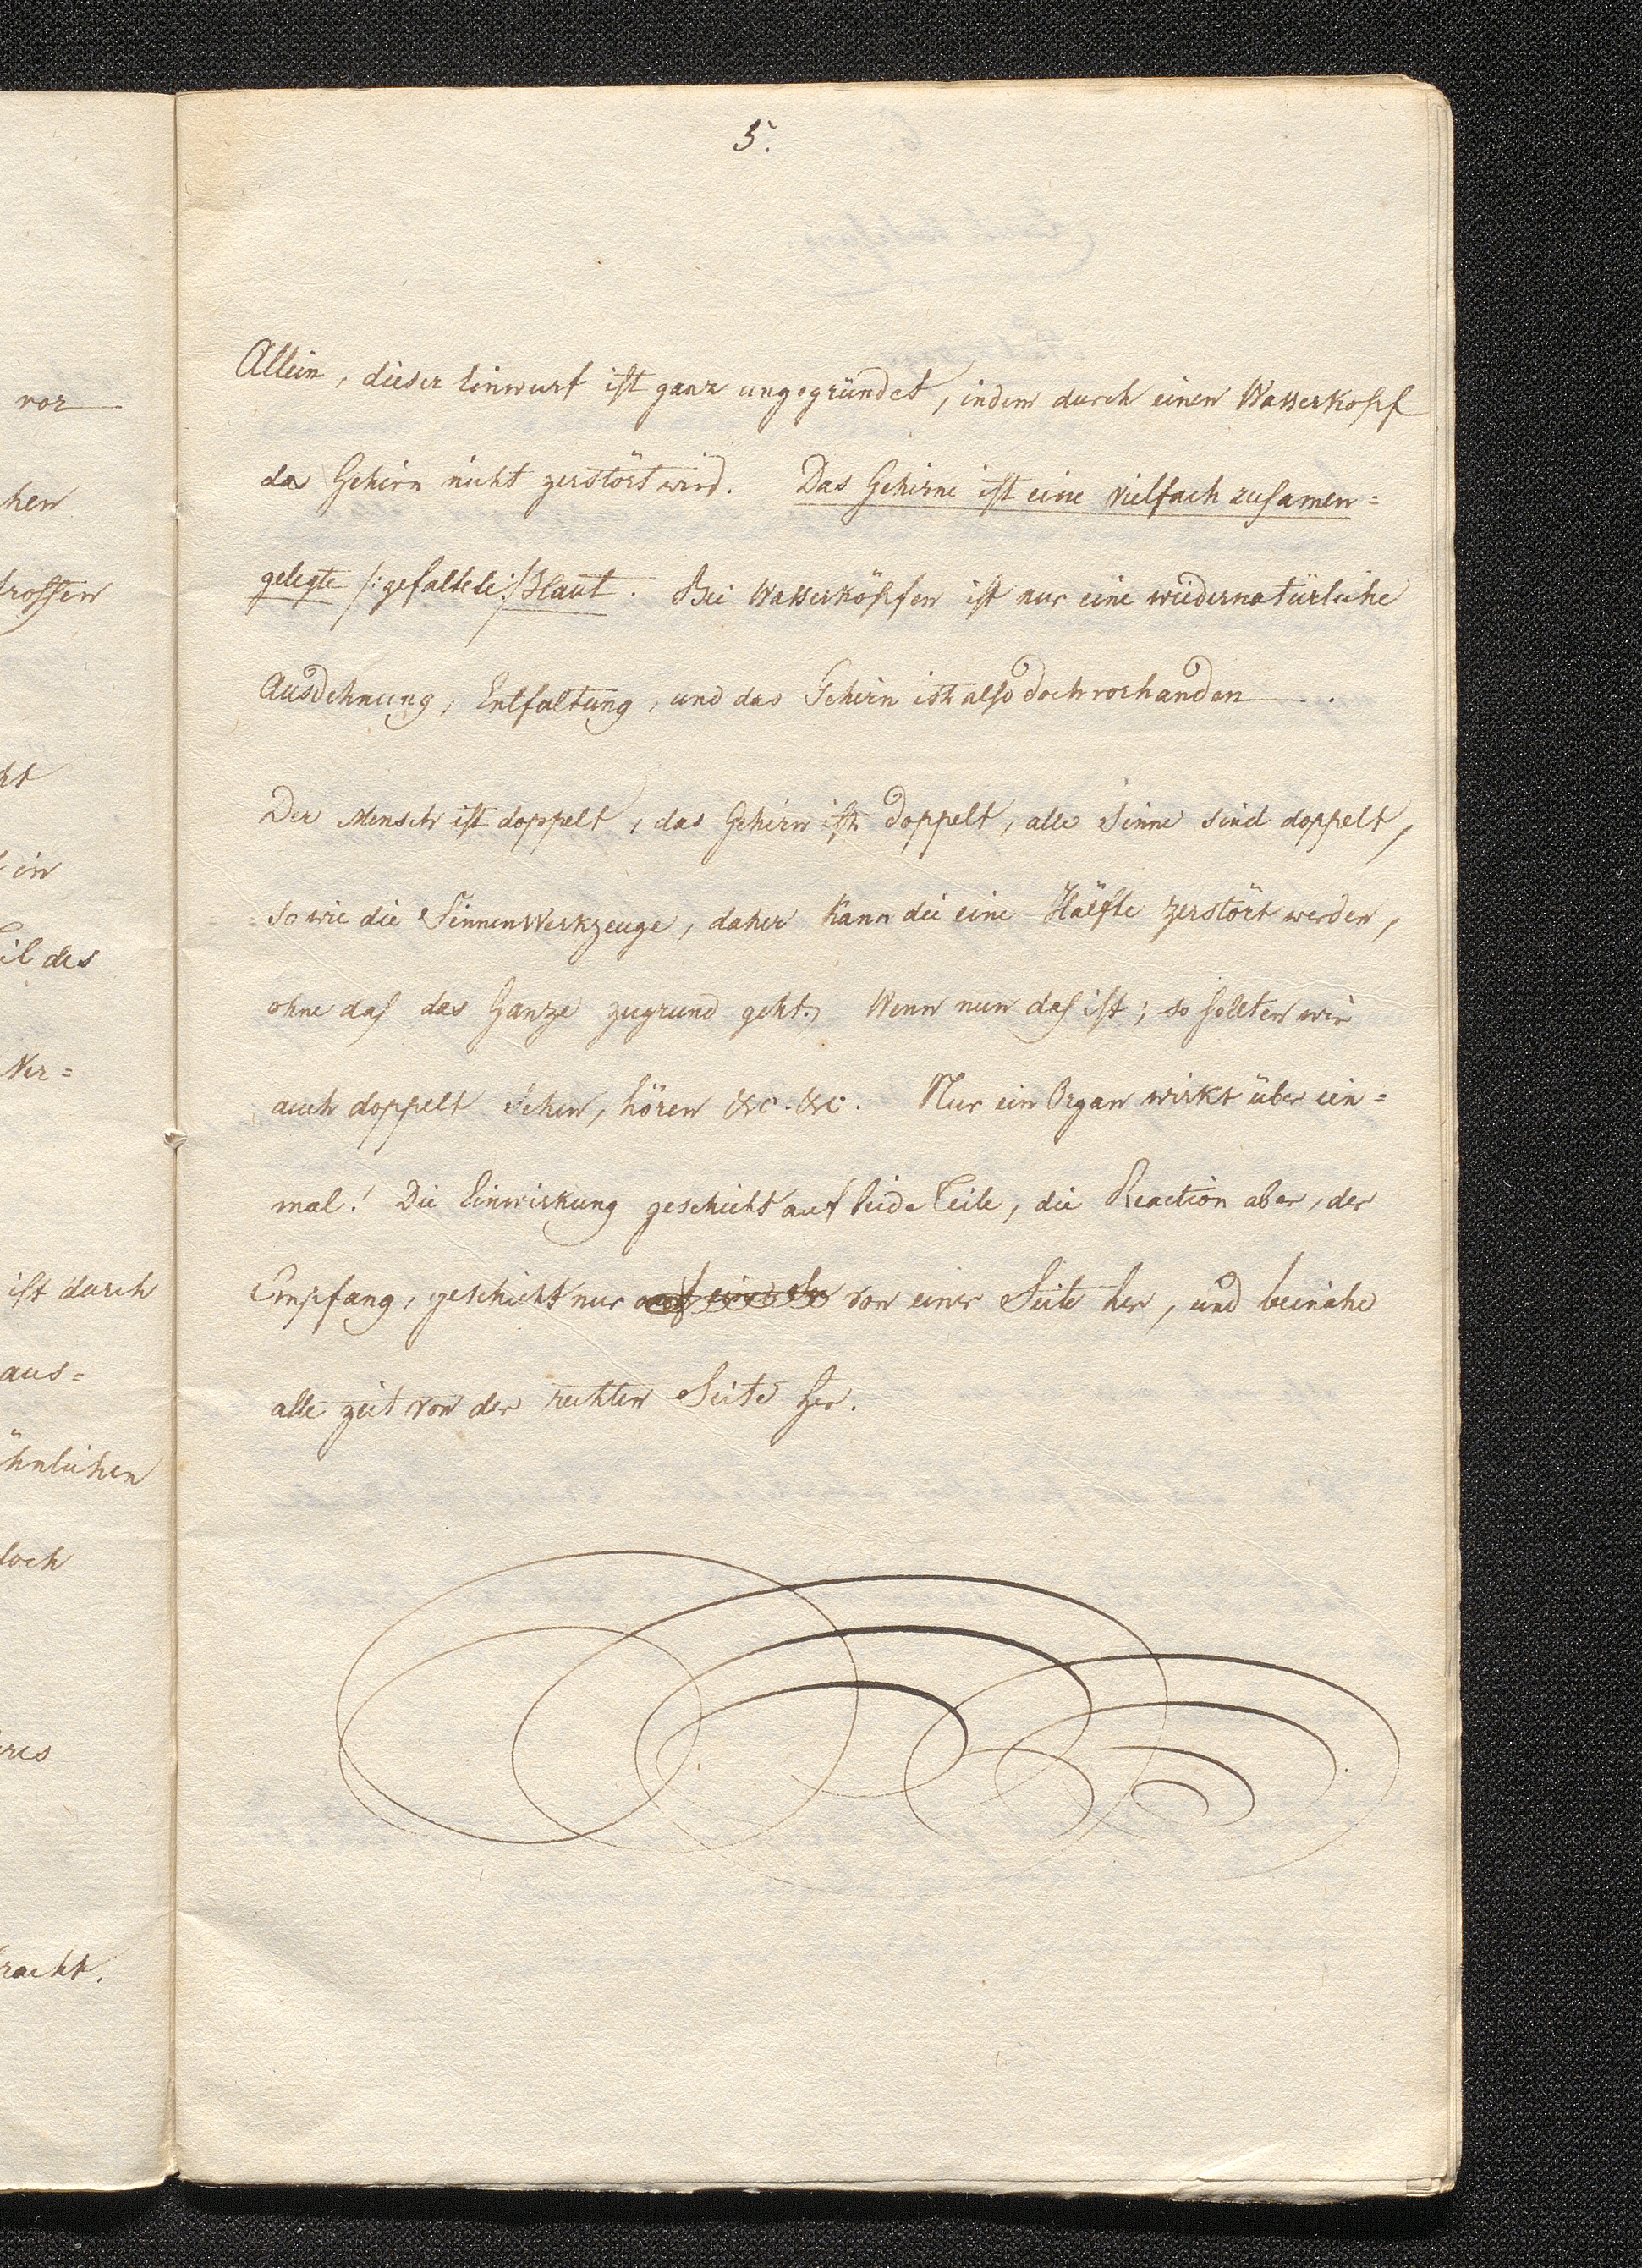 vor
hen
trossen
ht
in
il des
Ver=
ist durch
aus=
öhnlichen
doch
eres
racht.
5.
Allein, dieser Einwurf ist ganz ungegründet, indem durch einen Wasserkopf
da Gehirn nicht zerstört wird. Das Gehirne ist eine vielfach zusamen=
gelegte /: gefaltete :/ Haut. Bei Wasserköpfen ist nur eine wiedernatürliche
Ausdehnung, Entfaltung, und das Gehirn ist also doch vorhanden.
Der Mensch ist doppelt, das Gehirn ist doppelt, alle Sinne sind doppelt,
so wie die SinnenWerkzeuge, daher kann die eine Hälfte zerstört werden,
ohne daß das Ganze zugrund geht. Wenn nun daß ist; so sollten wir
auch doppelt sehen, hören &c. &c. Nur ein Organ wirkt über ein=
mal! Die Einwirkung geschieht auf beide Teile, die Reaction aber, der
Empfang, geschieht nur auf eine von einer Seite her, und beinahe
alle zeit von der rechten Seite her.